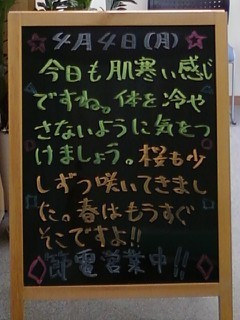 4月4日(月)
今日も肌寒い感じ
ですねっ。体を冷や
さないように気をつ
けましょう。桜も少
しずつ咲いてきまし
た。春はもうすぐ
そこですよ!!
節電営業中!!